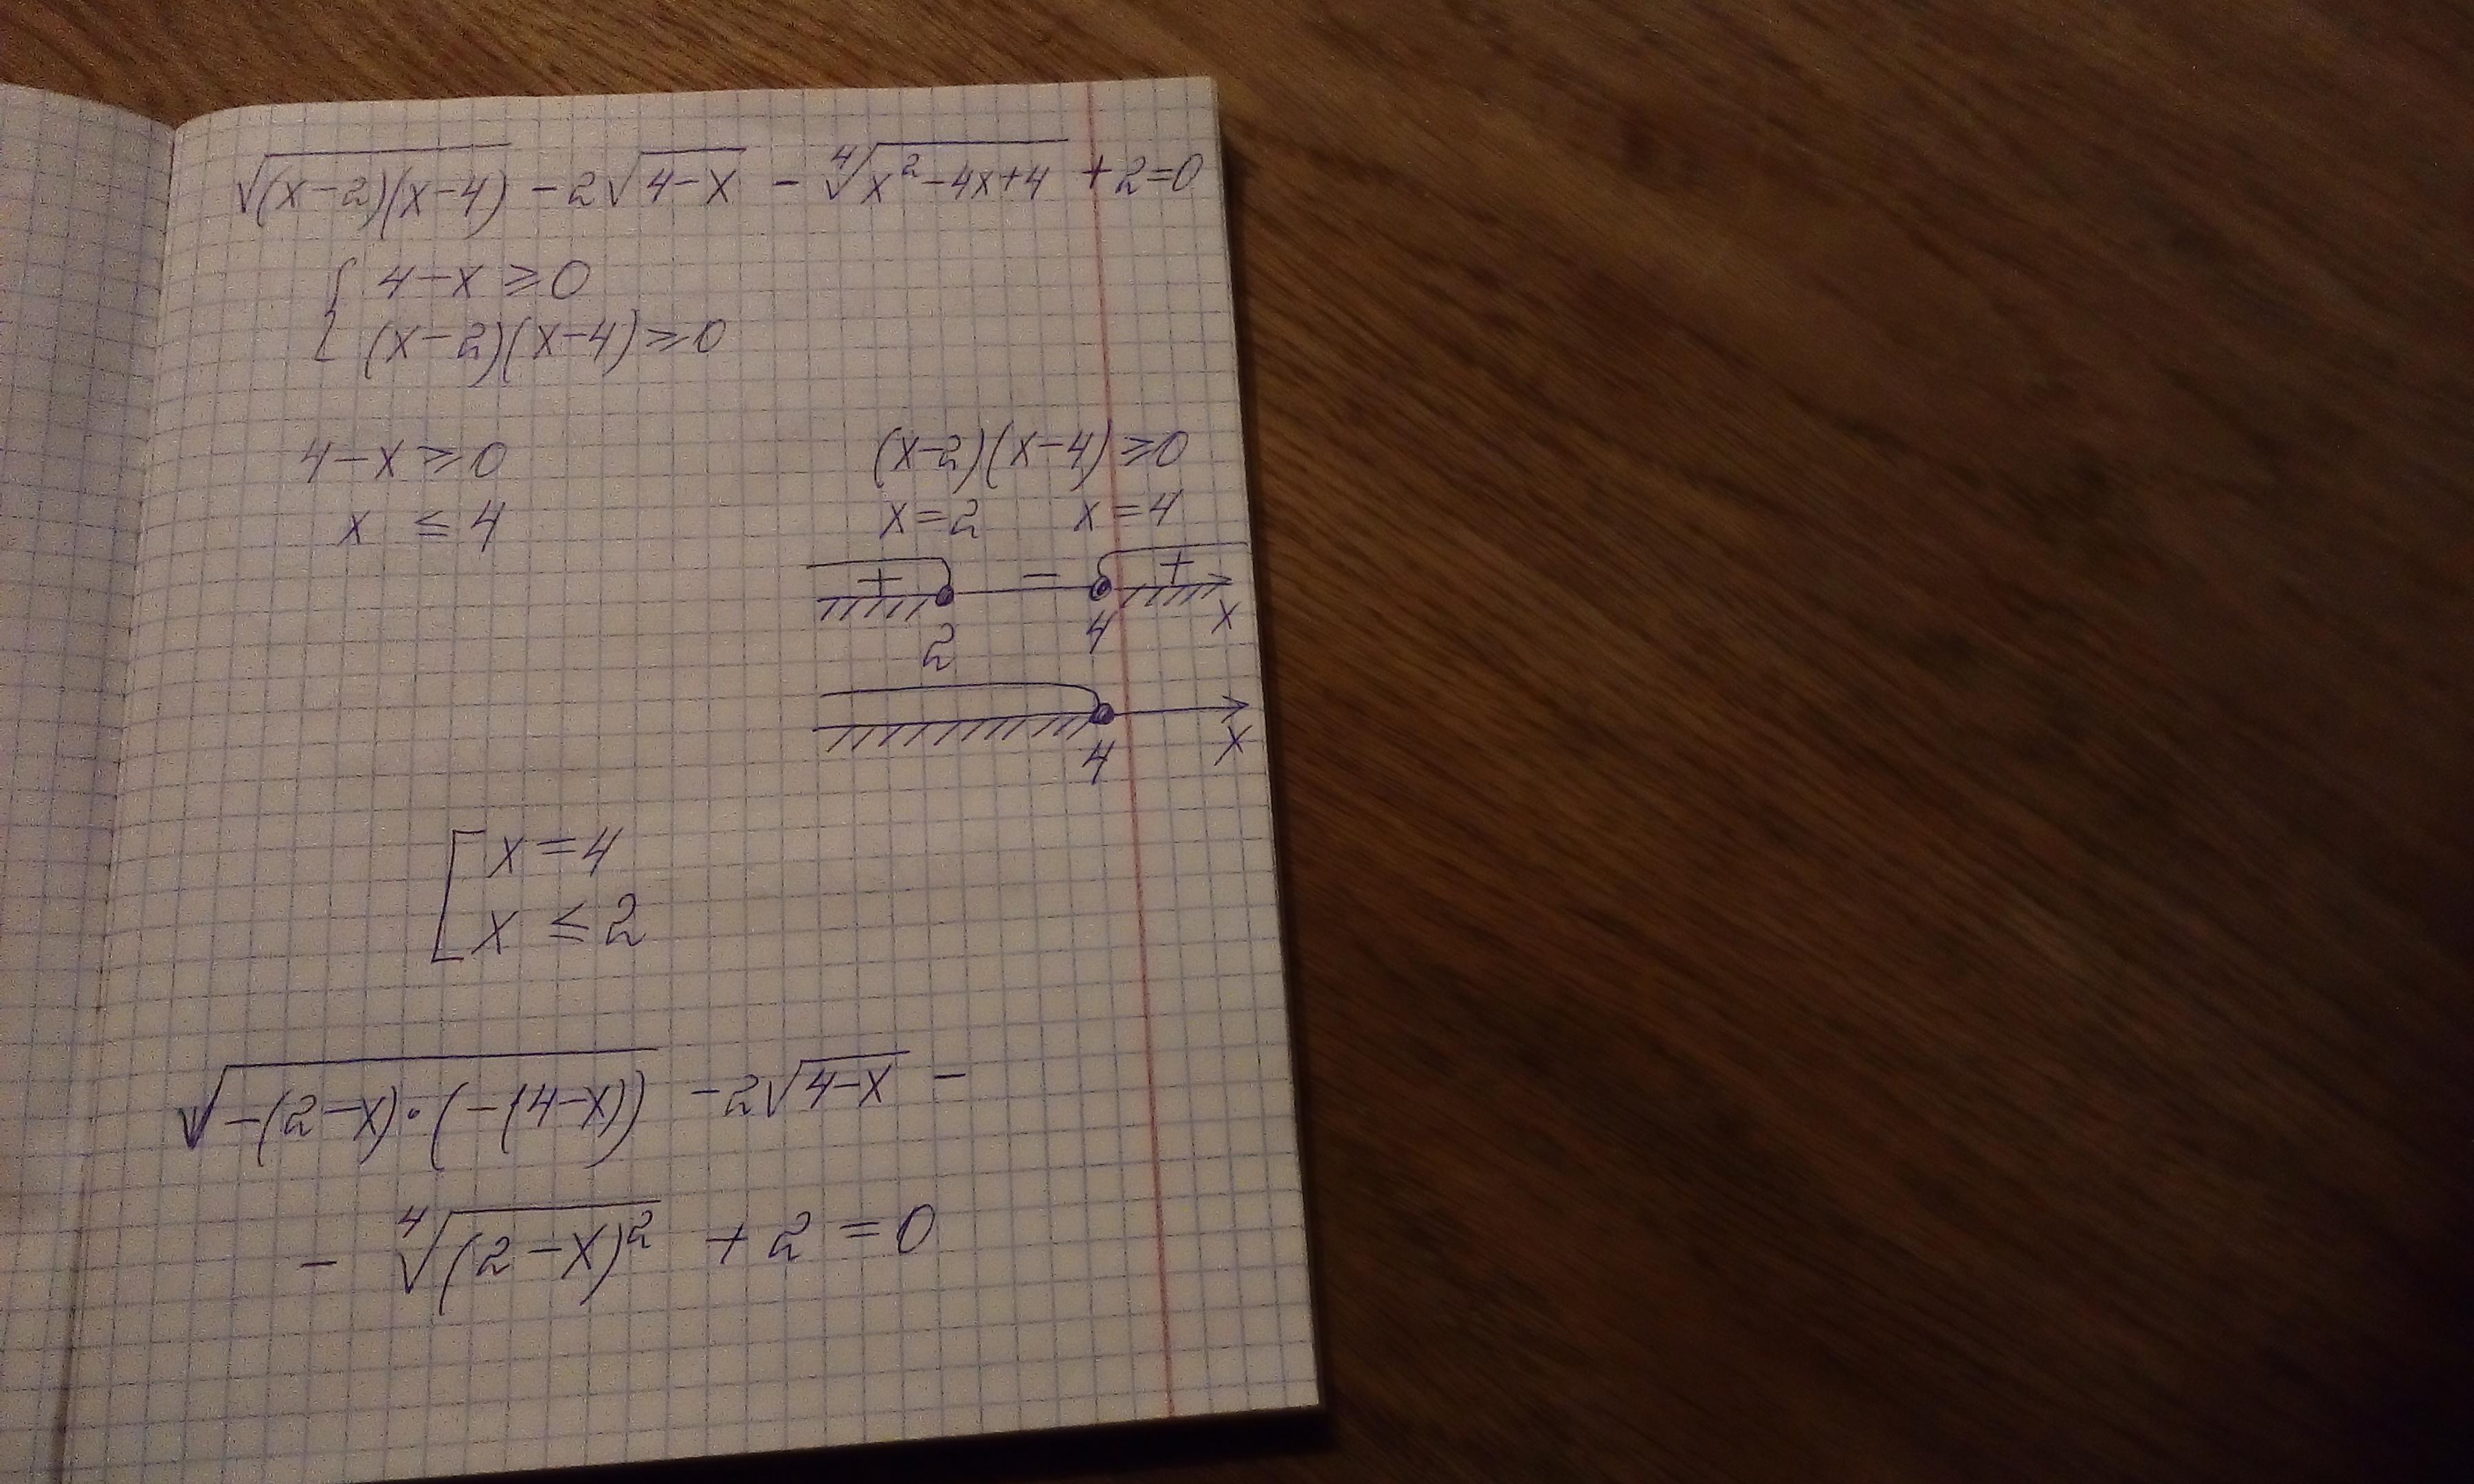 √(x-2)(x-4) - 2√4-x - ⁴√x²-4x+4 + 2=0
{ 4-x ≥ 0
(x-2)(x-4) ≥ 0
4-x ≥ 0 (x-2)(x-4) ≥ 0
x ≤ 4 x=2 x=4
+ - +
2 4 x
4 x
[ x=4
x ≤ 2
√-(2-x)·(-(4-x)) - 2√4-x -
- ⁴√(2-x)² + 2 = 0